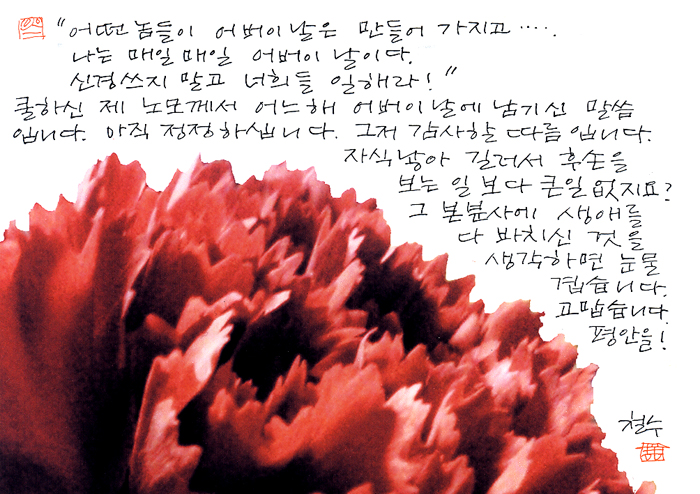 "어떤 놈들이 어버이날은 만들어 가지고·····.
나는 매일매일 어버이날이다.
신경쓰지 말고 너희들 일해라!"
쿨하신 제 노모께서 어느해 어버이날에 남기신 말씀
입니다. 아직 정정하십니다. 그저 감사할 따름입니다.
자식낳아 길러서 후손을
보는 일보다 큰일 없지요?
그 본분사에 생애를
다 바치신 것을
생각하면 눈물
겹습니다.
고맙습니다.
평안을!
철수